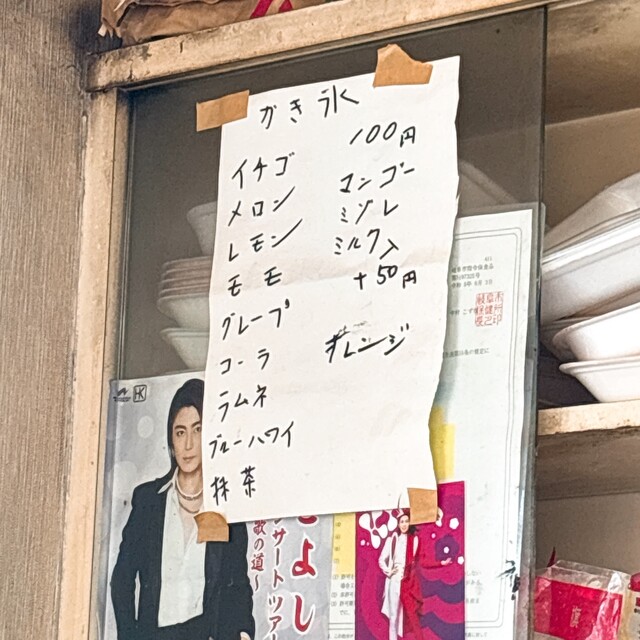 かき氷
100円
イチゴ
メロン
レモン
モモ
グレープ
コーラ
ラムネ
ブルーハワイ
抹茶
マンゴー
ミゾレ
ミルク入
+50円
オレンジ
HK
きよし
ンサートツアー
歌の道～